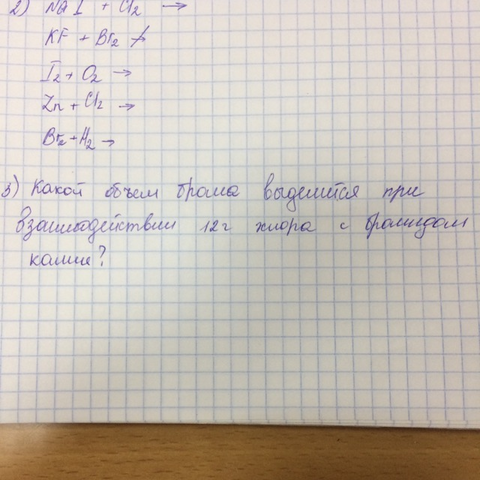 2) NaI + Cl₂ →
KF + Br₂ ↛
I₂ + O₂ →
Zn + Cl₂ →
Br₂ + H₂ →
3) Какой объем брома выделится при
взаимодействии 12г хлора с бромидом
калия?